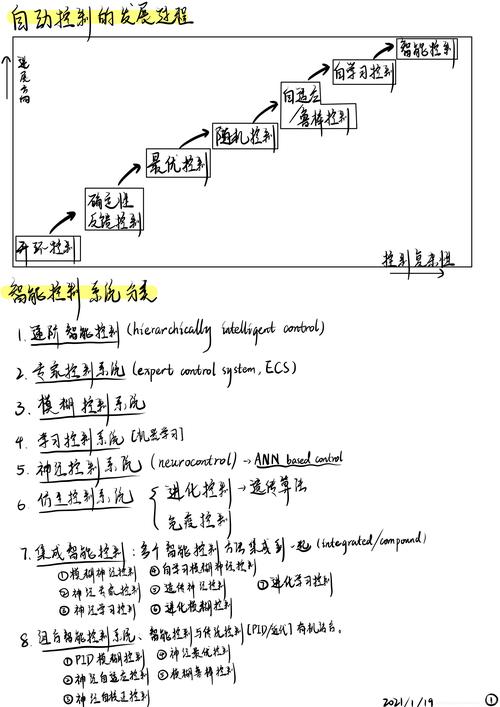 自动控制的发展过程
进展方向
智能控制
自学习控制
自适应
/鲁棒控制
随机控制
最优控制
确定性
反馈控制
开环控制
控制复杂性
智能控制系统分类
1. 递阶智能控制 (hierarchically intelligent control)
2. 专家控制系统 (expert control system, ECS)
3. 模糊控制系统
4. 学习控制系统 [机器学习]
5. 神经控制系统 (neurocontrol) → ANN based control
6. 仿生控制系统 { 进化控制 → 遗传算法
免疫控制
7. 集成智能控制：多个智能控制方法集成到一起 (integrated/compound)
①模糊神经控制 ④自学习模糊神经控制
②神经专家控制 ⑤遗传神经控制 ⑦进化学习控制
③神经学习控制 ⑥进化模糊控制
8. 组合智能控制系统、智能控制与传统控制 [PID/近代] 有机结合。
①PID模糊控制 ④神经最优控制
②神经自适应控制 ⑤模糊鲁棒控制
③神经自校正控制
2021/1/19 ①